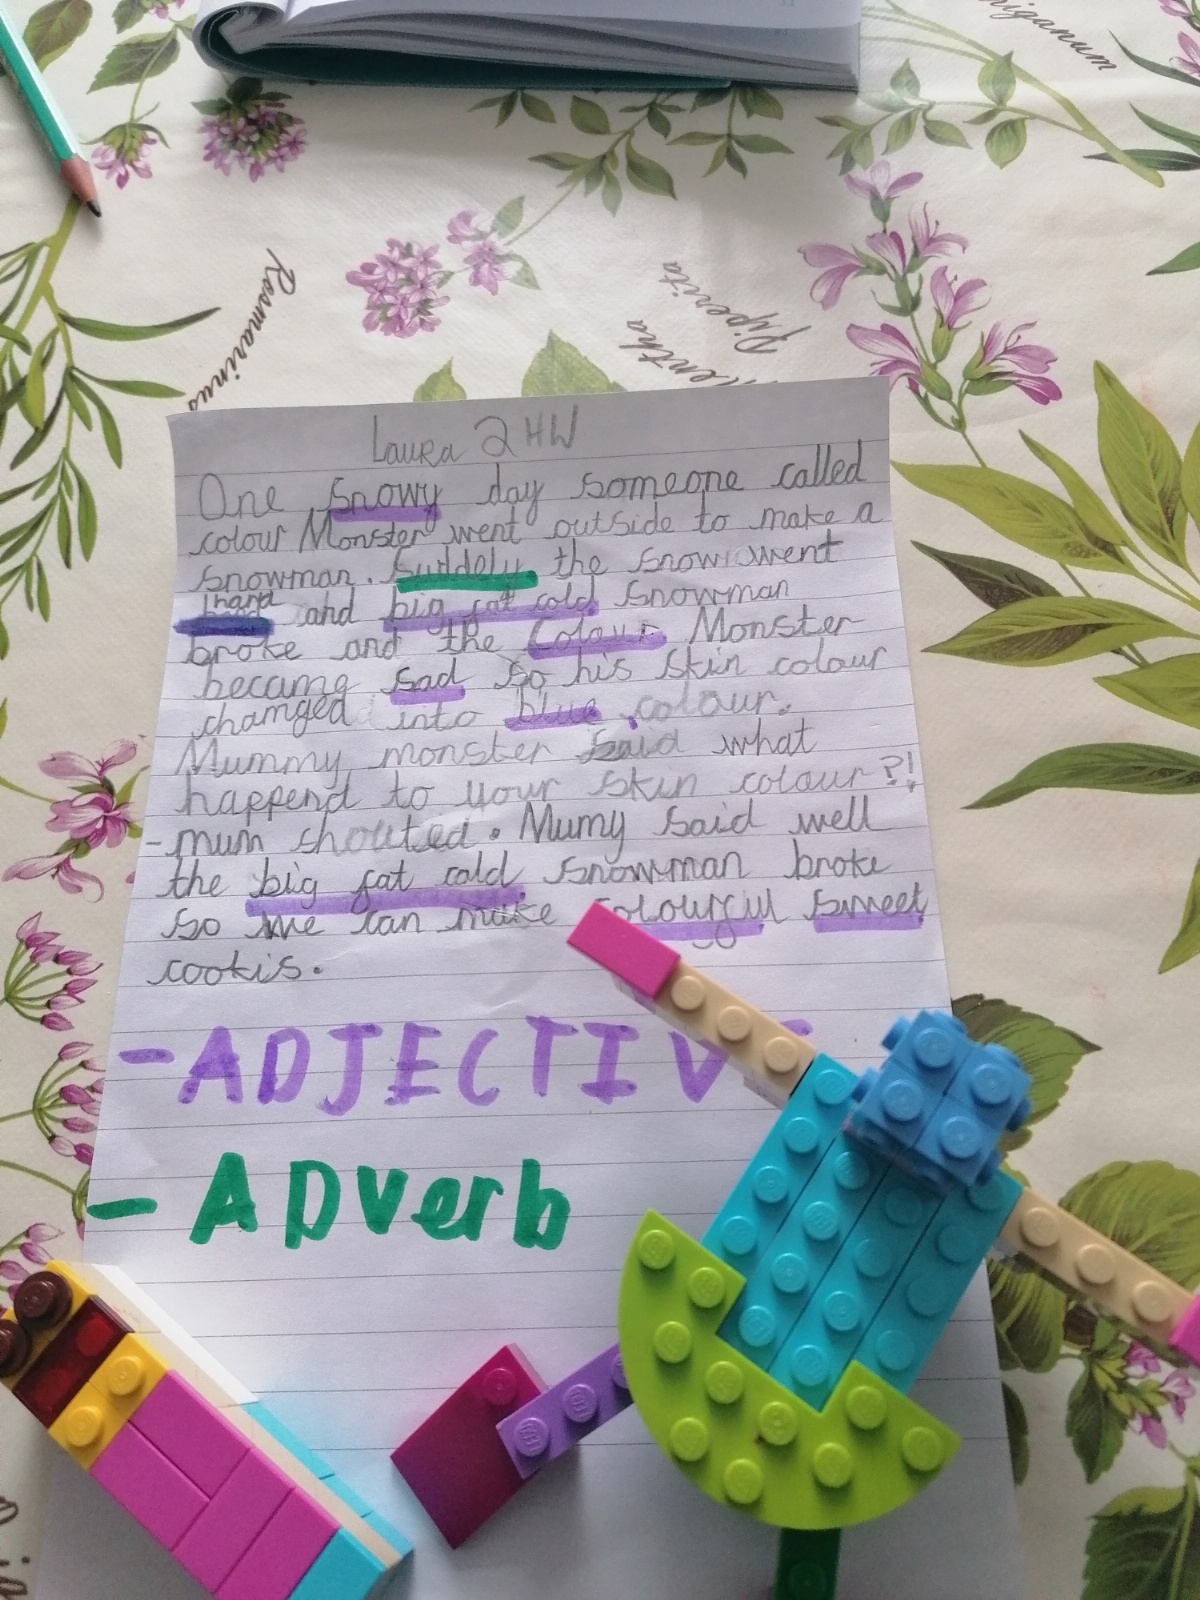 iganum
Rosmarinus
Mentha
Piperita
Laura 2HW
One snowy day someone called
colour Monster went outside to make a
snowman. Suddely the snow went
hard and big fat cold snowman
broke and the Colour Monster
became sad so his skin colour
changed into blue colour.
Mummy monster said what
happend to your skin colour?!
-mum shouted. Mumy said well
the big fat cold snowman broke
so we can make colourful sweet
cookis.
-ADJECTIVE
-ADverb